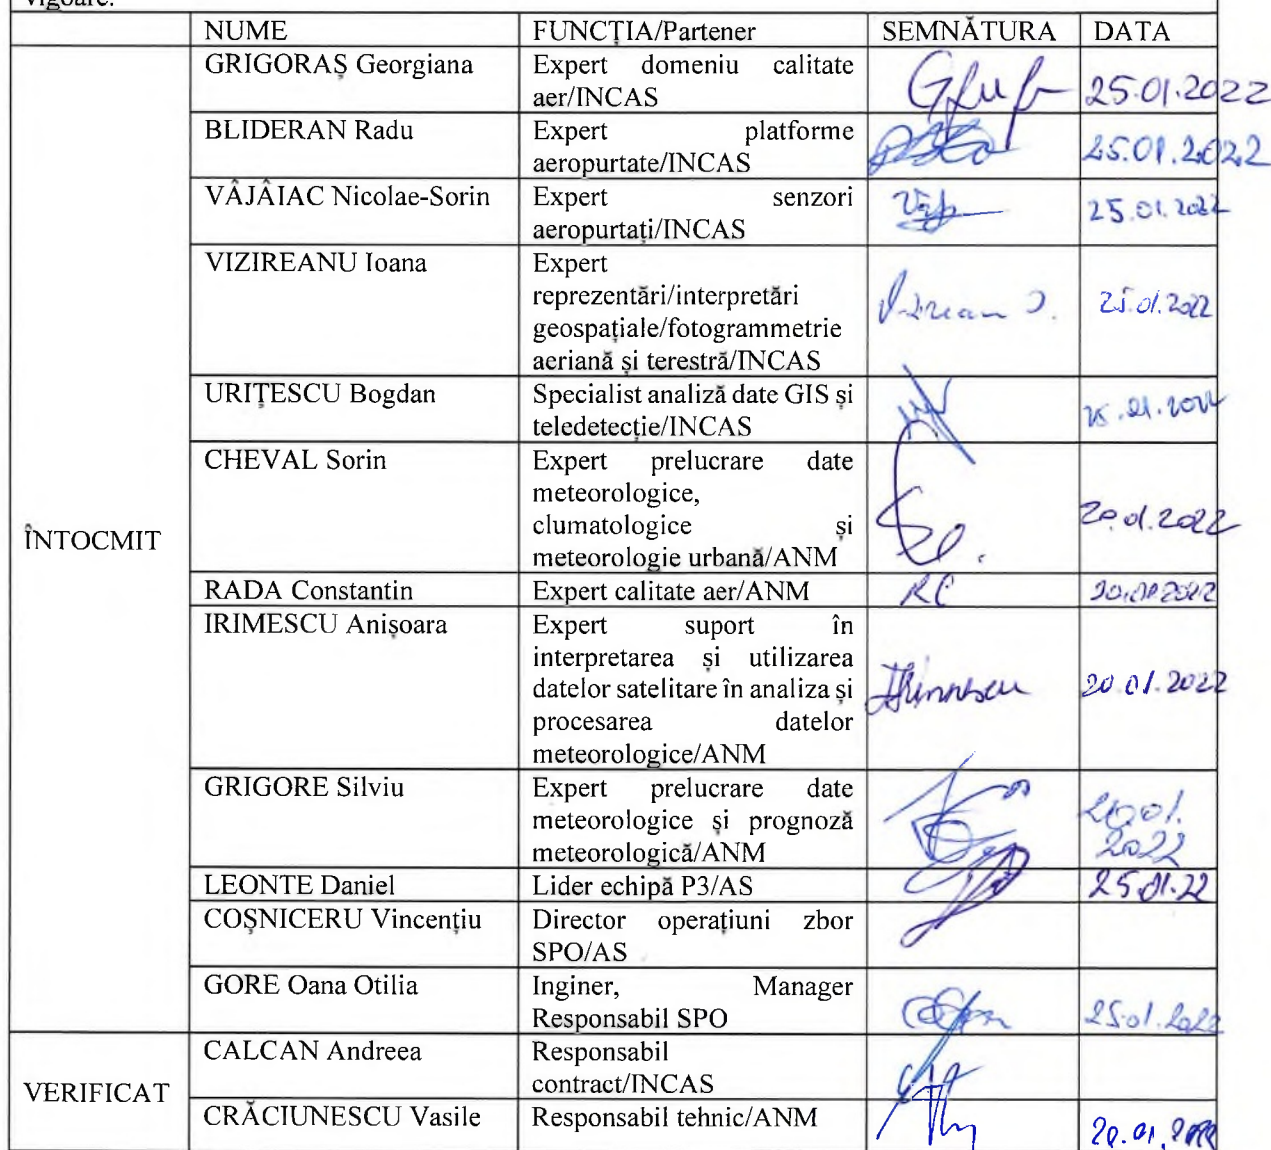 vigoare.
NUME FUNCȚIA/Partener SEMNĂTURA DATA
GRIGORAȘ Georgiana Expert domeniu calitate
aer/INCAS 25.01.2022
BLIDERAN Radu Expert platforme
aeropurtate/INCAS 25.01.2022
VÂJÂIAC Nicolae-Sorin Expert senzori
aeropurtați/INCAS 25.01.2022
VIZIREANU Ioana Expert
reprezentări/interpretări
geospațiale/fotogrammetrie 25.01.2022
aeriană și terestră/INCAS
URIȚESCU Bogdan Specialist analiză date GIS și
teledetecție/INCAS
CHEVAL Sorin Expert prelucrare date
meteorologice,
clumatologice și 20.01.2022
meteorologie urbană/ANM
ÎNTOCMIT
RADA Constantin Expert calitate aer/ANM RC 20.01.2022
IRIMESCU Anișoara Expert suport în
interpretarea și utilizarea
datelor satelitare în analiza și 20.01.2022
procesarea datelor
meteorologice/ANM
GRIGORE Silviu Expert prelucrare date
meteorologice și prognoză 20.01.
meteorologică/ANM 2022
LEONTE Daniel Lider echipă P3/AS 25.01.22
COȘNICERU Vincențiu Director operațiuni zbor
SPO/AS
GORE Oana Otilia Inginer, Manager
Responsabil SPO 25.01.2022
VERIFICAT
CALCAN Andreea Responsabil
contract/INCAS
CRĂCIUNESCU Vasile Responsabil tehnic/ANM 20.01.2022